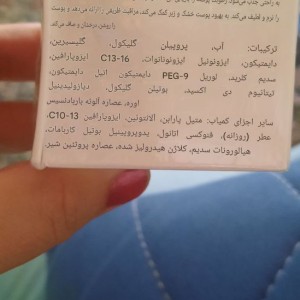 به راحتی جذب می‌شود
را نرم و لطیف می‌کند. به بهبود پوست خشک و زبر کمک می‌کند. مراقبت ظریفی را ارائه می‌دهد و پوست
را روشن، درخشان و صاف می‌کند.
ترکیبات: آب، پروپیلن گلیکول، گلیسیرین،
دایمتیکون، ایزونونیل ایزونونانوات، C13-16 ایزوپارافین،
سدیم کلرید، لوریل PEG-9 دایمتیکون اتیل دایمتیکون،
تیتانیوم دی اکسید، بوتیلن گلیکول، دیازولیدینیل
اوره، عصاره آلوئه باربادنسیس
سایر اجزای کمیاب: متیل پارابن، آلانتوئین، ایزوپارافین C10-13،
عطر (روزانه)، فنوکسی اتانول، یدوپروپینیل بوتیل کاربامات،
هیالورونات سدیم، کلاژن هیدرولیز شده، عصاره پروتئین شیر.